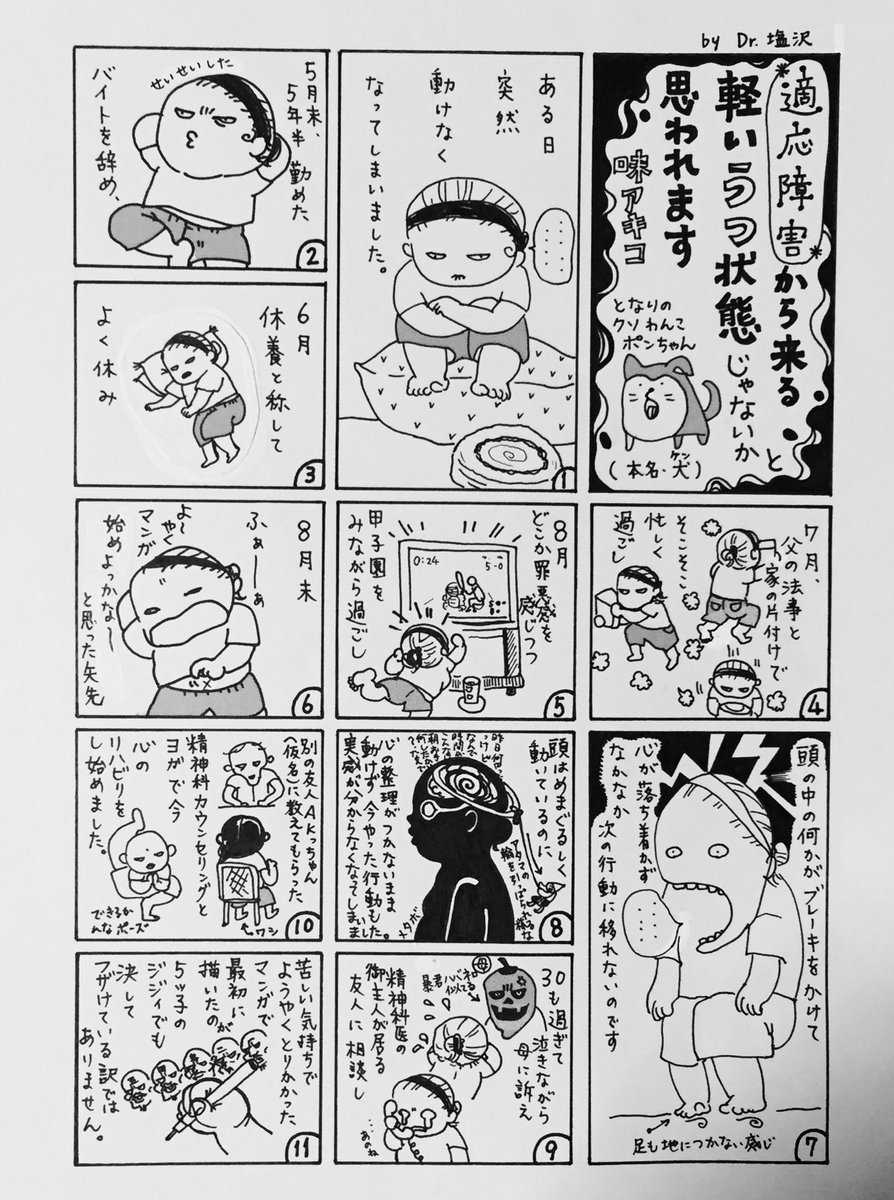 by Dr. 塩沢
*適応障害*から来る
軽いうつ状態じゃないか
と
思われます
味アキコ
となりの
クソわんこ
ポンちゃん
(本名・犬)
ケン
ある日
突然
動けなく
なってしまいました。
‥‥‥
1
せいせいした
5月末、
5年半
勤めた、
バイトを辞め、
2
6月
休養と称して
よく休み
3
7月、
父の法事と
家の片付けで
そこそこ
忙しく
過ごし
4
8月
どこか罪悪感を
感じつつ
甲子園を
みながら過ごし
0:24
5-0
5
8月末
ふぁーーぁ
よ〜やく
マンガ
始めよっかな〜
と思った矢先
6
頭の中の何かがブレーキをかけて
心が落ち着かず
なかなか
次の行動に移れないのです
‥‥‥
足も地につかない感じ
7
頭はめまぐるしく
動いているのに
心の整理がつかないまま
動けず今やった行動もした
実感が分からなくなってしまいました。
アタマの
輪を引っぱられる様な
メタボ
8
30も過ぎて
泣きながら
母に訴え
母
暴君ハバネロ
似てる
精神科医の
御主人が居る
友人に相談し
…あのね
9
別の友人AKっちゃん
(仮名)に教えてもらった
精神科カウンセリングと
ヨガで今
心の
リハビリを
し始めました。
できるか
んなポーズ
ワシ
10
苦しい気持ちで
ようやくとりかかった
マンガで
最初に
描いたのが
5ッ子の
ジジィでも
決して
フザけている訳では
ありません。
11